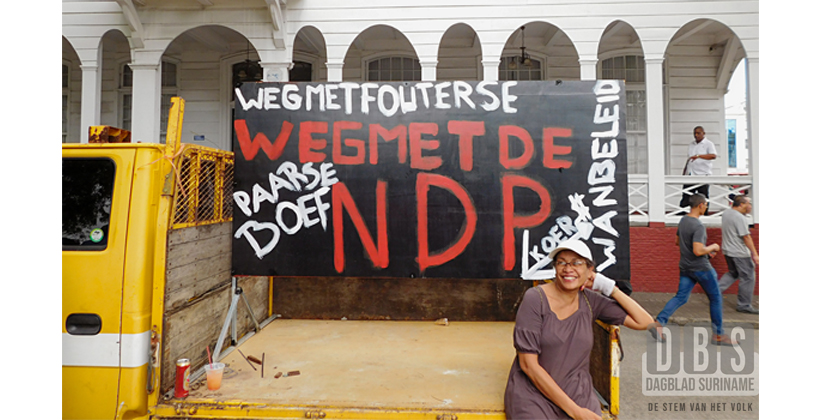 WEGMETFOUTERSE
WEGMET DE
NDP
PAARSE
BOEF
KOERS
WANBELEID
DBS
DAGBLAD SURINAME
DE STEM VAN HET VOLK